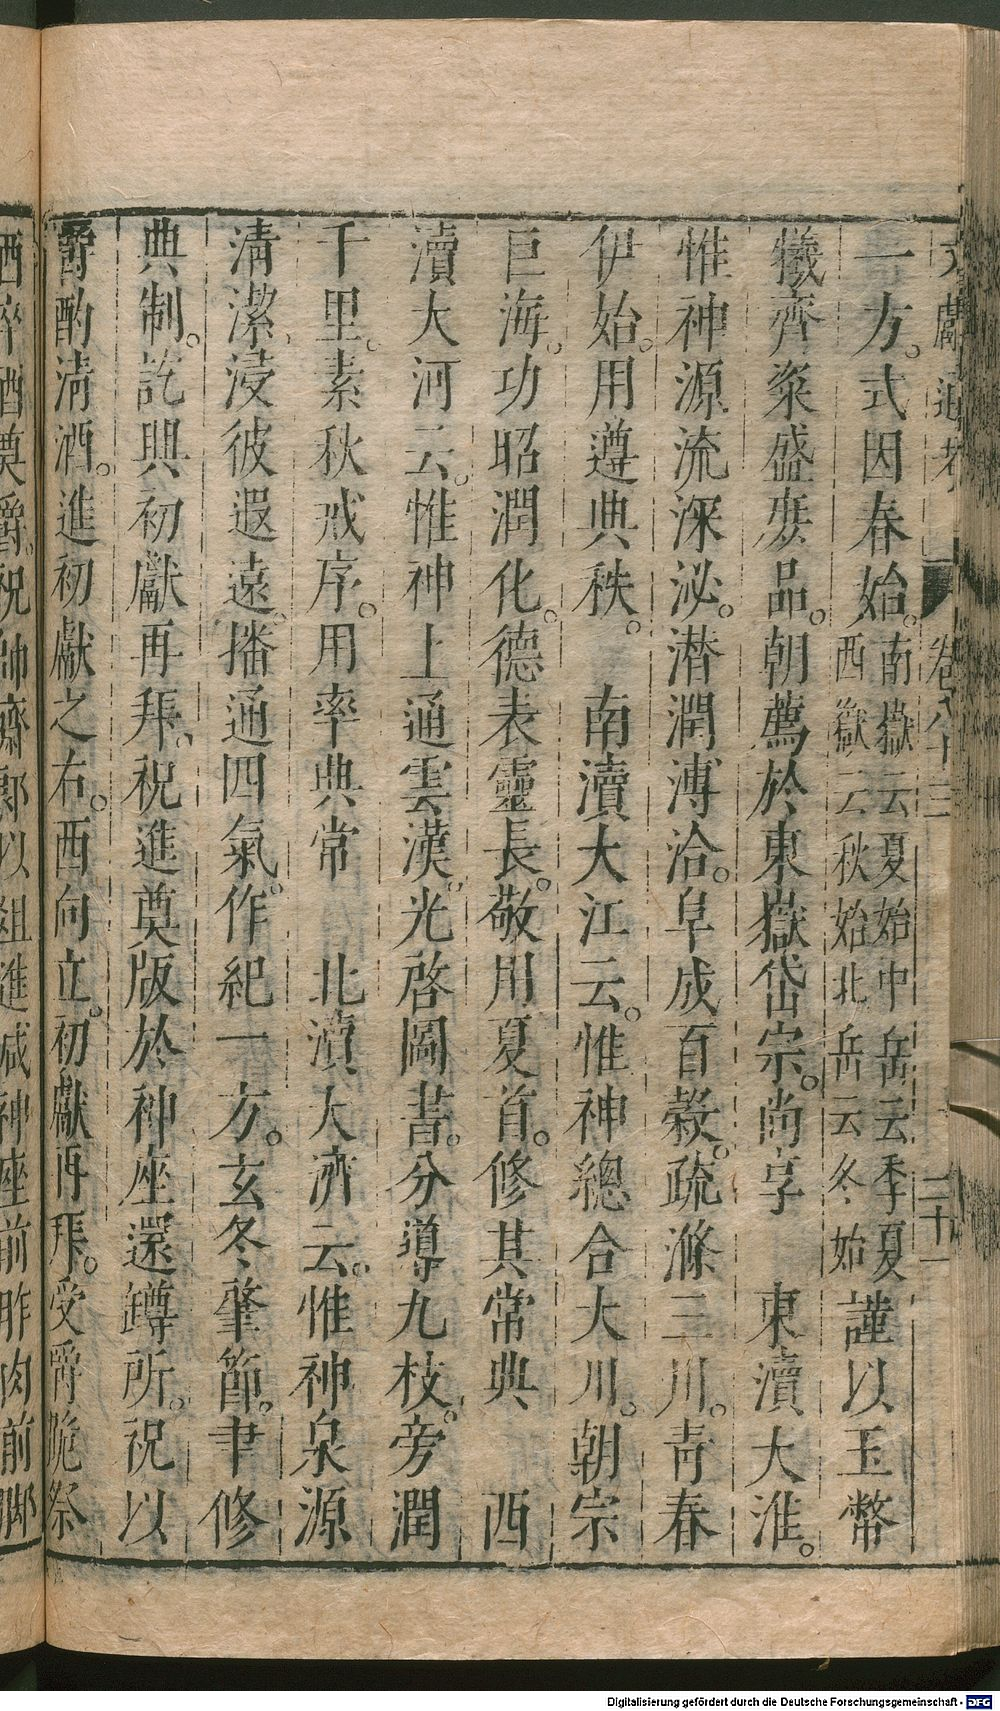 文獻通考 卷八十三 二十一
一方。式因春始。南嶽云夏始中岳云季夏西嶽云秋始北岳云冬始謹以玉幣
犧齊粢盛庶品。朝薦於東嶽岱宗。尚享 東瀆大淮。
惟神源流深泌。潛潤溥洽。阜成百穀。疏滌三川。青春
伊始。用遵典秩。 南瀆大江云。惟神總合大川。朝宗
巨海。功昭潤化。德表靈長。敬用夏首。修其常典 西
瀆大河云。惟神上通雲漢。光啓圖書。分導九枝。旁潤
千里。素秋戒序。用率典常 北瀆大濟云。惟神泉源
清潔。浸彼遐遠。播通四氣。作紀一方。玄冬肇節。聿修
典制。訖興初獻再拜。祝進奠版於神座還罇所。祝以
爵酌清酒。進初獻之右。西向立。初獻再拜。受爵跪祭
酒啐酒奠爵。祝帥齋郎以俎進減神座前胙肉前脚
Digitalisierung gefördert durch die Deutsche Forschungsgemeinschaft - DFG